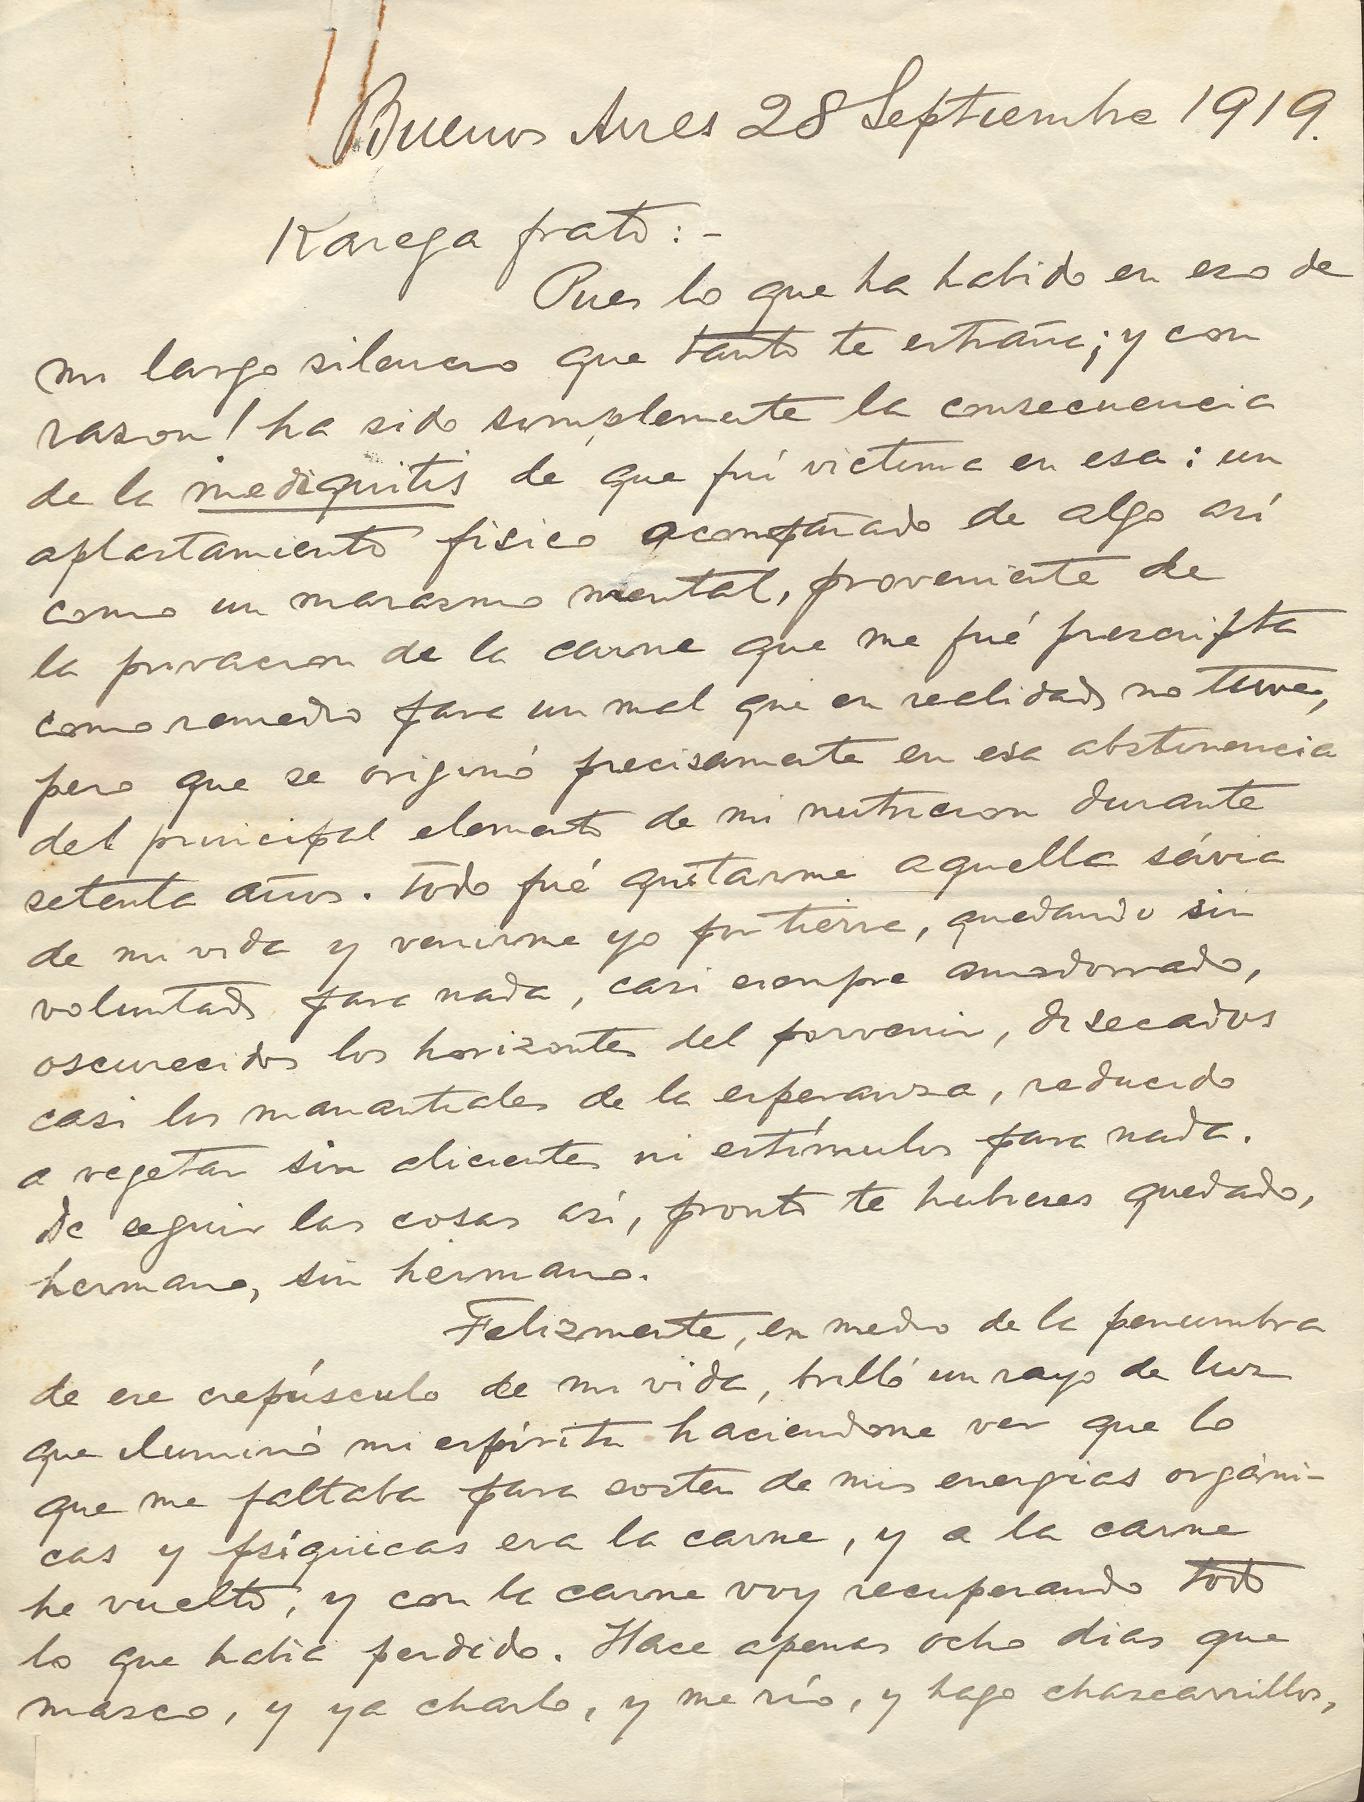 Buenos Aires 28 Septiembre 1919.
Karega frato:-
Pues lo que ha habido en eso de
mi largo silencio que tanto te estraña; y con
razon! ha sido simplemente la consecuencia
de la mediquitis de que fuí victima en esa: un
aplastamiento físico acompañado de algo así
como un marasmo mental, proveniente de
la privacion de la carne que me fué prescripta
como remedio para un mal que en realidad no tuve,
pero que se originó precisamente en esa abstinencia
del principal elemento de mi nutricion durante
setenta años. Todo fué quitarme aquella sávia
de mi vida y venirme yo por tierra, quedando sin
voluntad para nada, casi siempre amodorrado,
oscurecidos los horizontes del porvenir, disecados
casi los manantiales de la esperanza, reducido
a vegetar sin alicientes ni estímulos para nada.
De seguir las cosas así, pronto te hubieres quedado,
hermano, sin hermano.
Felizmente, en medio de la penumbra
de ese crepúsculo de mi vida, brilló un rayo de luz
que iluminó mi espíritu haciendome ver que lo
que me faltaba para sosten de mis energias orgáni-
cas y psíquicas era la carne, y a la carne
he vuelto, y con la carne voy recuperando todo
lo que habia perdido. Hace apenas ocho dias que
masco, y ya charlo, y me río, y hago chascarrillos,